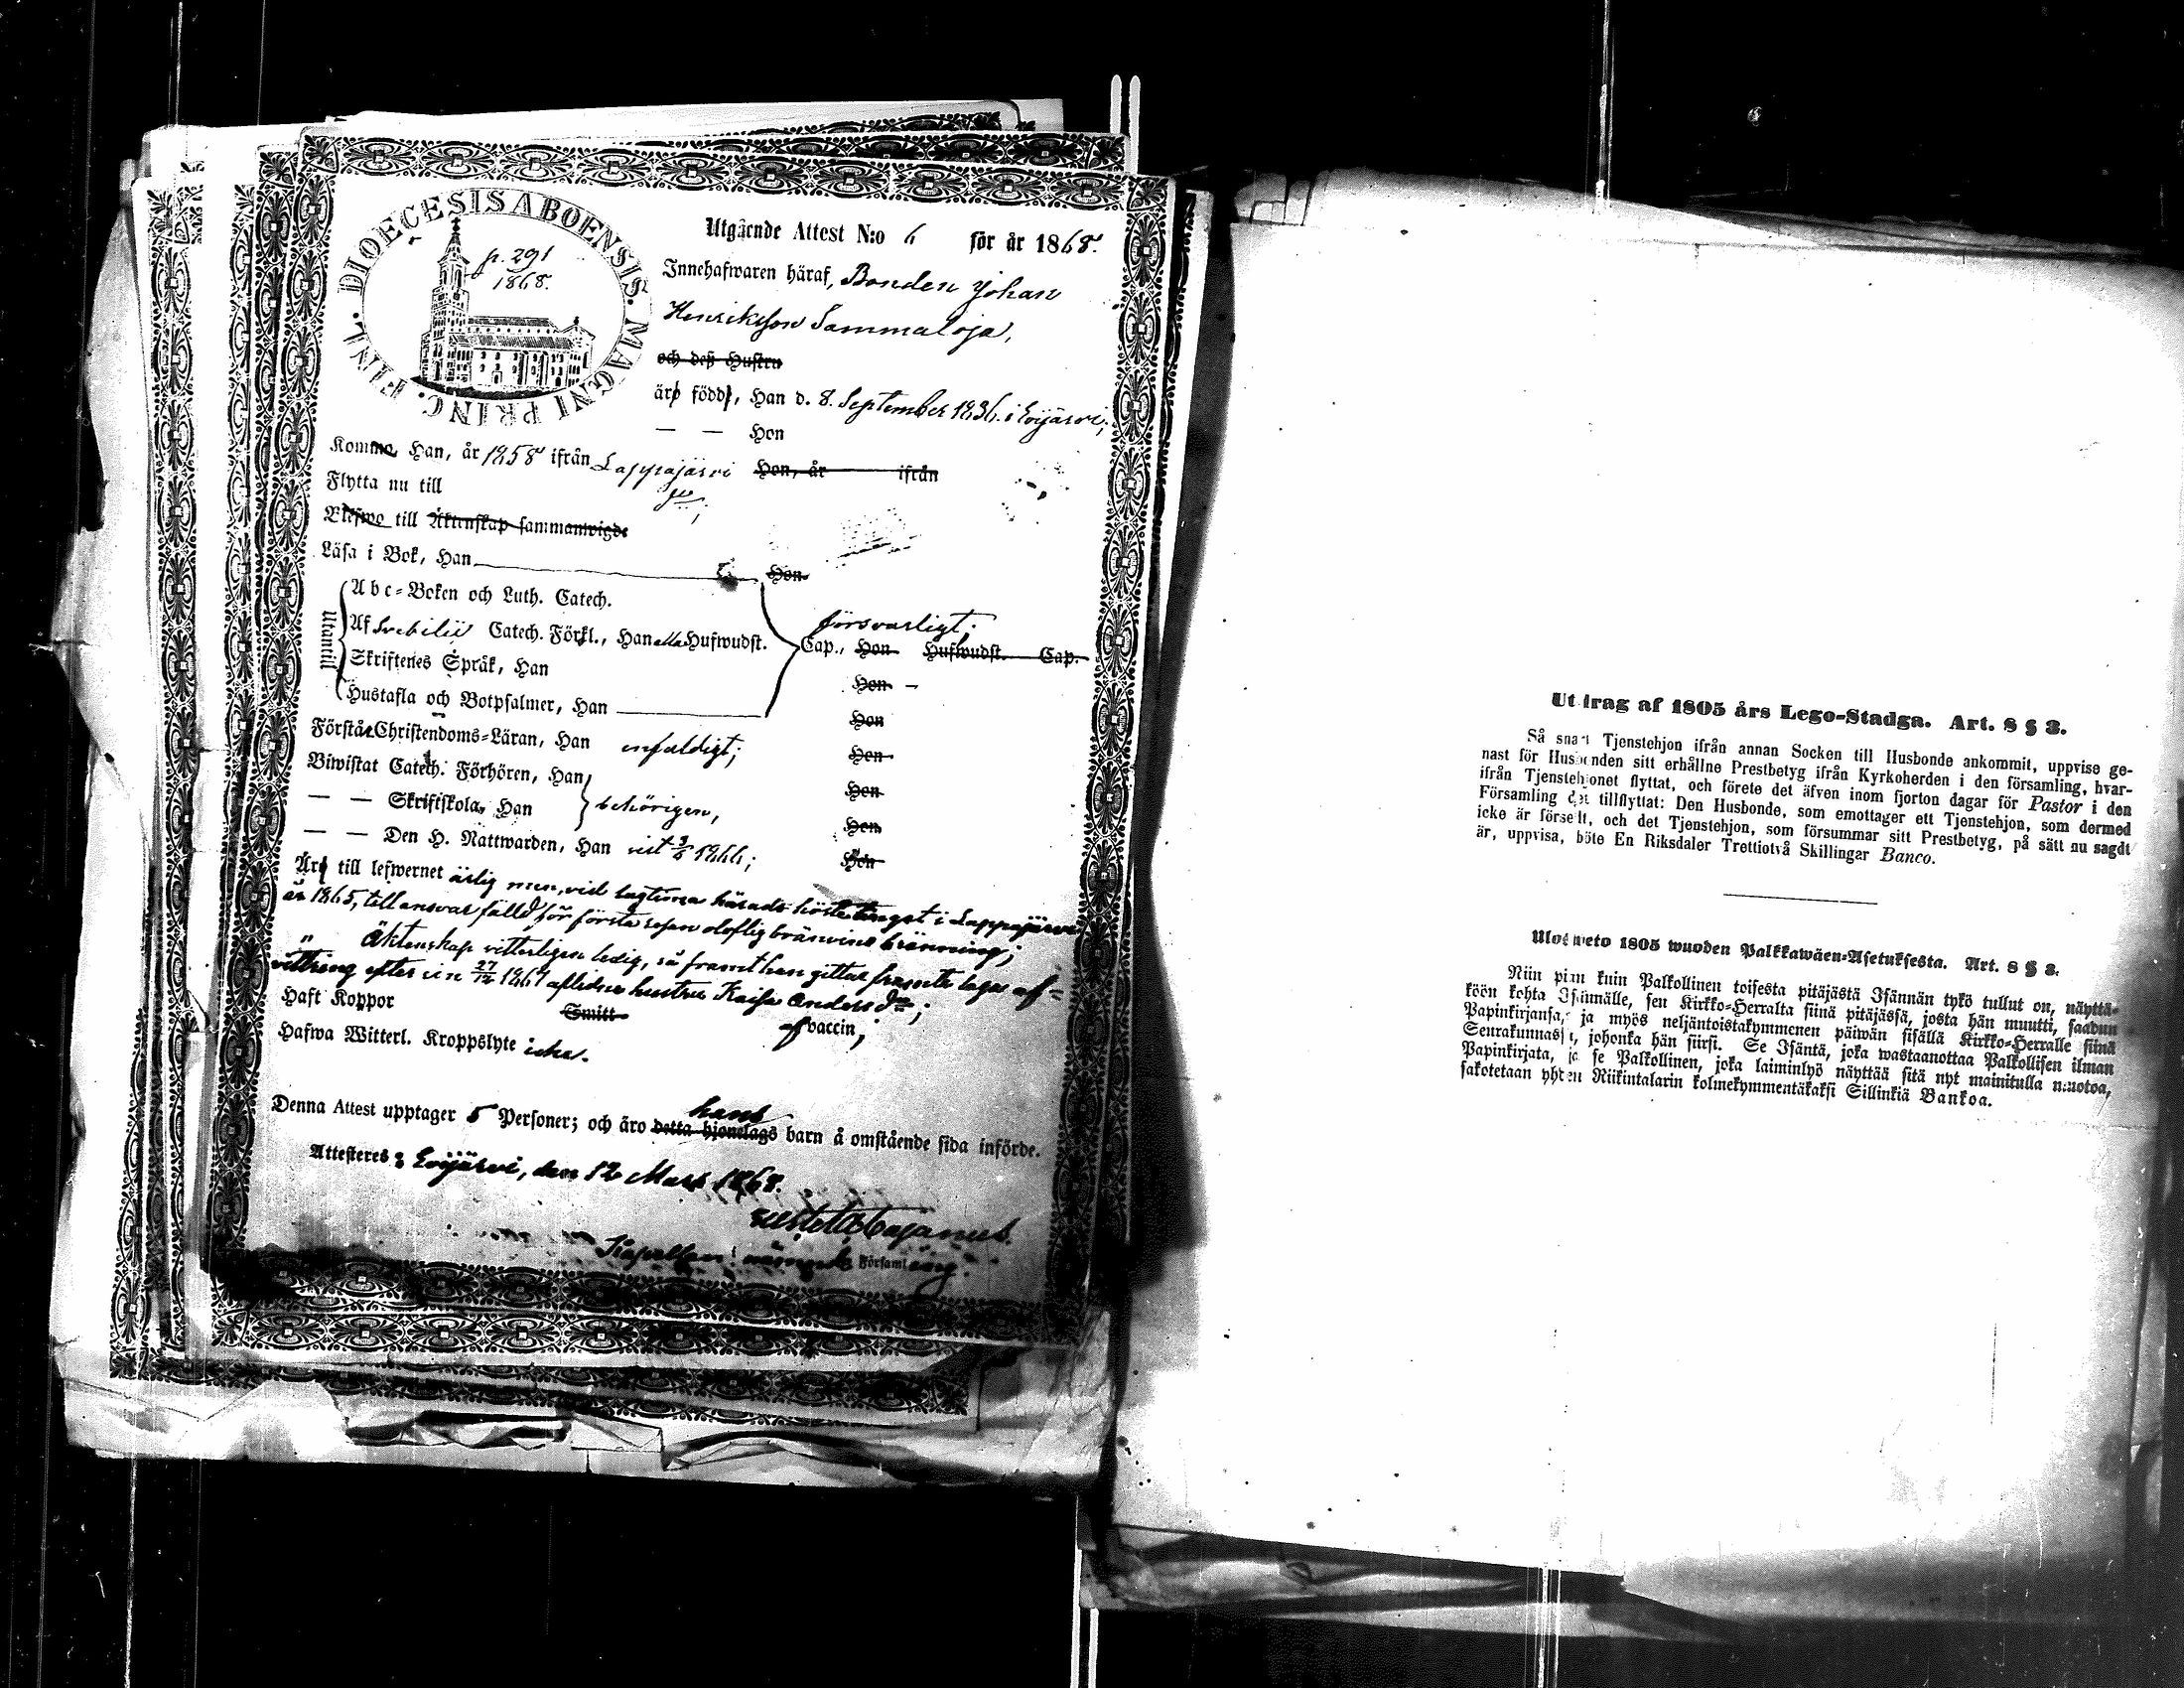 DIOECESIS ABOENSIS. MAGNI PRINC. FINL.
p. 291
1868.
Utgående Attest N:o 6 för år 1868.
Innehafwaren häraf, Bonden Johan
Henriksson Sammaloja,
och deß Hustru
äro född, Han d. 8. September 1836. i Evijärvi;
— — Hon
Komme Han, år 1858 ifrån Lappajärvi Hon, år ifrån
Flytta nu till
Blefwo till Äktenskap sammanwigde
Läsa i Bok, Han Hon
Utantill
Abc-Boken och Luth. Catech.
försvarligt;
Af Svebilii Catech. Förkl., Han alla Hufwudst. Cap., Hon Hufwudst. Cap.
Skriftenes Språk, Han Hon —
Hustafla och Botpsalmer, Han Hon
Förstår Christendoms-Läran, Han enfaldigt; Hon
Biwistat Catech. Förhören, Han Hon
— — Skriftskola, Han behörigen, Hon
— — Den H. Nattwarden, Han sist 3/6 1866; Hon
Äro till lefwernet ärlig men, vid lagtima härads höstetinget i Lappajärvi
år 1865, till ansvar fälld för första resan oloflig bränvins bränning;
" Äktenskap vitterligen ledig, så framt han gittar framte laga af-
vittring efter sin 27/12 1867 aflidna hustru Kaisa Anders dr;
Haft Koppor Smitt vaccin;
Hafwa Witterl. Kroppslyte icke.
Denna Attest upptager 5 Personer; och äro detta hjonelags hans barn å omstående sida införde.
Attesteres; Evijärvi, den 12 Mars 1868.
Cajanus.
Kapellan i nämnde Församling.
Utdrag af 1805 års Lego-Stadga. Art. 8 § 3.
Så snart Tjenstehjon ifrån annan Socken till Husbonde ankommit, uppvise ge-
nast för Husbonden sitt erhållne Prestbetyg ifrån Kyrkoherden i den församling, hvar-
ifrån Tjenstehjonet flyttat, och förete det äfven inom fjorton dagar för Pastor i den
Församling det tillflyttat: Den Husbonde, som emottager ett Tjenstehjon, som dermed
icke är försedt, och det Tjenstehjon, som försummar sitt Prestbetyg, på sätt nu sagdt
är, uppvisa, böte En Riksdaler Trettiotvå Skillingar Banco.
Ulosweto 1805 wuoden Palkkawäen-Asetuksesta. Art. 8 § 3.
Niin pian kuin Palkollinen toisesta pitäjästä Isännän tykö tullut on, näyttä-
köön kohta Isännälle, sen Kirkko-Herralta siinä pitäjässä, josta hän muutti, saadun
Papinkirjansa, ja myös neljäntoistakymmenen päiwän sisällä Kirkko-Herralle siinä
Seurakunnassa, johonka hän siirsi. Se Isäntä, joka wastaanottaa Palkollisen ilman
Papinkirjata, ja se Palkollinen, joka laiminlyö näyttää sitä nyt mainitulla muotoa,
sakotetaan yhten Riikintalarin kolmekymmentäkaksi Sillinkiä Bankoa.